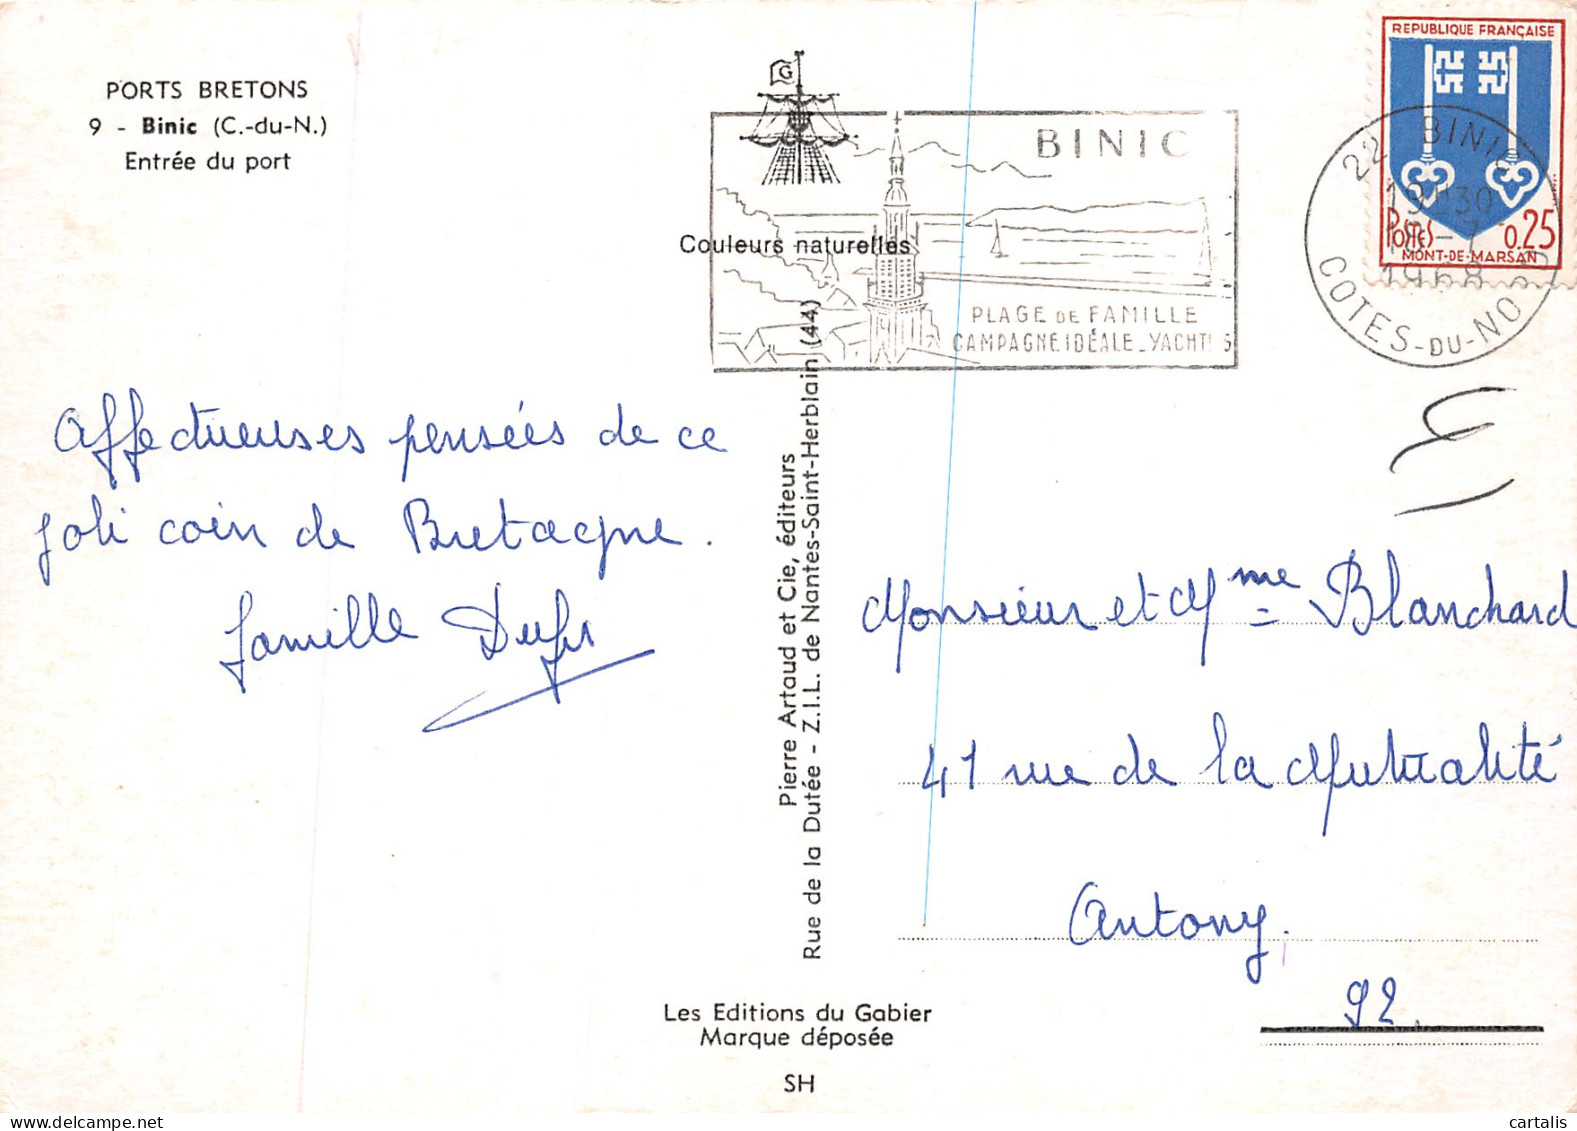 PORTS BRETONS
9 - Binic (C.-du-N.)
Entrée du port
G
BINIC
PLAGE DE FAMILLE
CAMPAGNE IDÉALE - YACHTING
Couleurs naturelles
REPUBLIQUE FRANÇAISE
POSTES 0,25
MONT-DE-MARSAN
22 BINIC
19H30
1968
COTES-DU-NORD
Affectueuses pensées de ce
joli coin de Bretagne.
famille
Pierre Artaud et Cie, éditeurs
Rue de la Dutée - Z.I.L. de Nantes-Saint-Herblain (44)
Monsieur et Mme Blanchard
41 rue de la Mutualité
Antony.
92.
Les Editions du Gabier
Marque déposée
SH
cartalis